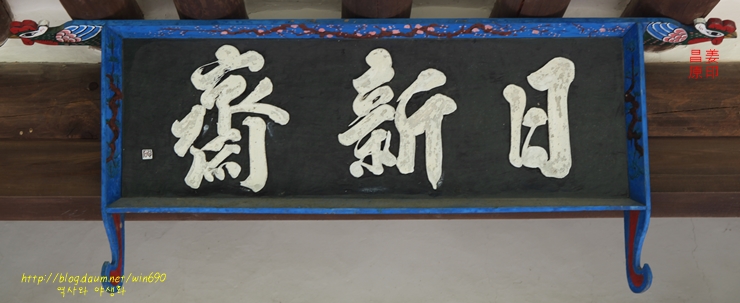 日新齋
姜印
昌原
http://blog.daum.net/win690
역사와 야생화